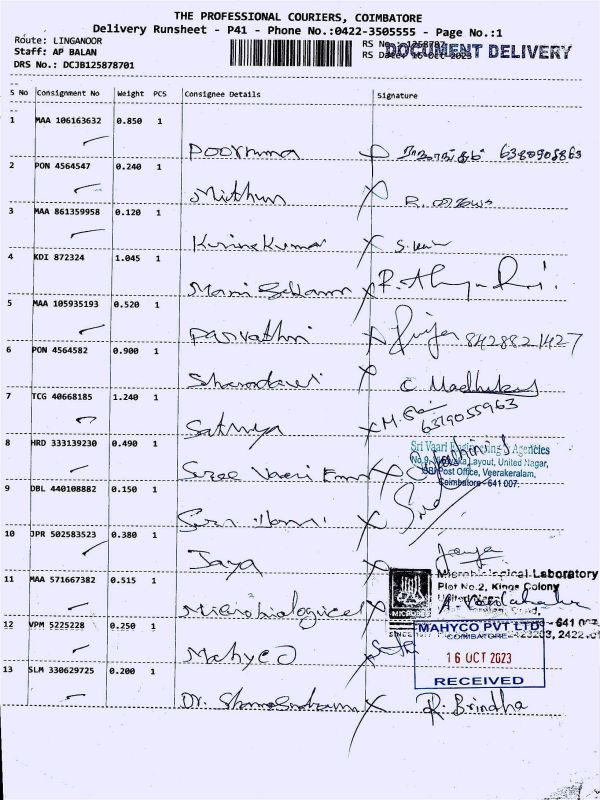 THE PROFESSIONAL COURIERS, COIMBATORE
Delivery Runsheet - P41 - Phone No.:0422-3505555 - Page No.:1
Route: LINGANOOR
Staff: AP BALAN
DRS No.: DCJB125878701
RS No.:1258787
RS Date: 16-Oct-2023
DOCUMENT DELIVERY
S No Consignment No Weight PCS Consignee Details Signature
1 MAA 106163632 0.850 1
Poornima 6380908863
2 PON 4564547 0.240 1
Mithun R.
3 MAA 861359958 0.120 1
Kirine Kumar S.
4 KDI 872324 1.045 1
Mani
5 MAA 105935193 0.520 1
Parvathi 8428821427
6 PON 4564582 0.900 1
C. Madhukar
7 TCG 40668185 1.240 1
Sathya M. 6379055963
8 HRD 333139230 0.490 1
Sri Vaari Engineering Agencies
Layout, United Nagar,
Post Office, Veerakeralam,
Coimbatore - 641 007.
Sree Vaari
9 DBL 440108882 0.150 1
10 JPR 502583523 0.380 1
Jaya Jaya
11 MAA 571667382 0.515 1
Microbiological Laboratory
Plot No.2, Kings Colony
Microbiological
12 VPM 5225228 0.250 1
MAHYCO PVT LTD
COIMBATORE
Mahyco
16 OCT 2023
RECEIVED
13 SLM 330629725 0.200 1
Dr. R. Brindha